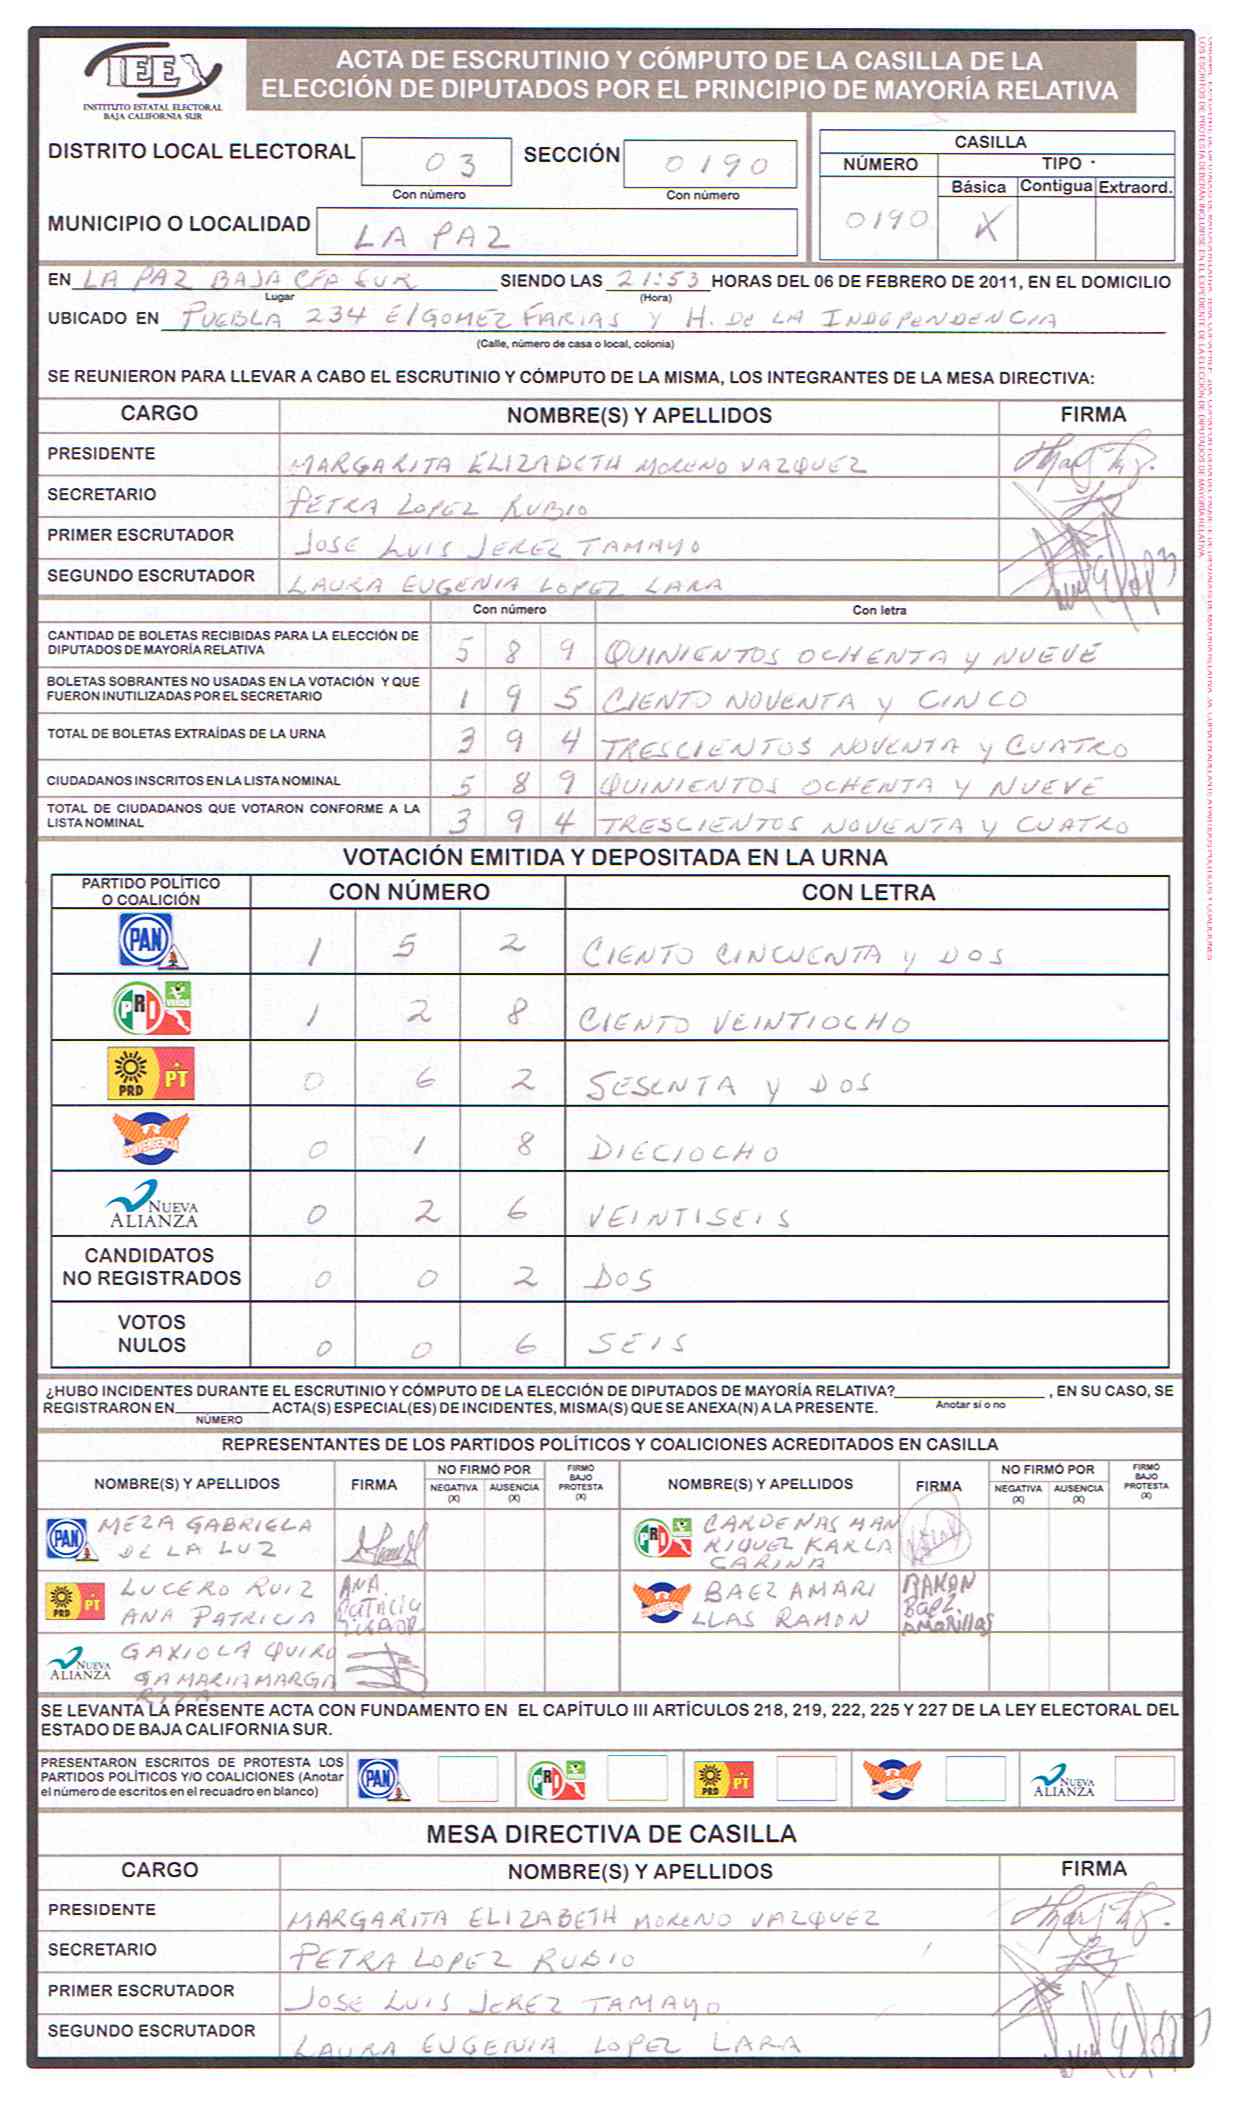 IEE
INSTITUTO ESTATAL ELECTORAL
BAJA CALIFORNIA SUR
ACTA DE ESCRUTINIO Y CÓMPUTO DE LA CASILLA DE LA
ELECCIÓN DE DIPUTADOS POR EL PRINCIPIO DE MAYORÍA RELATIVA
DISTRITO LOCAL ELECTORAL 03 SECCIÓN 0190
Con número Con número
MUNICIPIO O LOCALIDAD LA PAZ
CASILLA
NÚMERO TIPO
Básica Contigua Extraord.
0190 X
EN LA PAZ BAJA SUR SIENDO LAS 21:53 HORAS DEL 06 DE FEBRERO DE 2011, EN EL DOMICILIO
Lugar (Hora)
UBICADO EN PUEBLA 234 E/GOMEZ FARIAS Y H. DE LA INDEPENDENCIA
(Calle, número de casa o local, colonia)
SE REUNIERON PARA LLEVAR A CABO EL ESCRUTINIO Y CÓMPUTO DE LA MISMA, LOS INTEGRANTES DE LA MESA DIRECTIVA:
CARGO NOMBRE(S) Y APELLIDOS FIRMA
PRESIDENTE MARGARITA ELIZABETH MORENO VAZQUEZ
SECRETARIO PETRA LOPEZ RUBIO
PRIMER ESCRUTADOR JOSE LUIS JEREZ TAMAYO
SEGUNDO ESCRUTADOR LAURA EUGENIA LOPEZ LARA
Con número Con letra
CANTIDAD DE BOLETAS RECIBIDAS PARA LA ELECCIÓN DE
DIPUTADOS DE MAYORÍA RELATIVA 5 8 9 QUINIENTOS OCHENTA Y NUEVE
BOLETAS SOBRANTES NO USADAS EN LA VOTACIÓN Y QUE
FUERON INUTILIZADAS POR EL SECRETARIO 1 9 5 CIENTO NOVENTA Y CINCO
TOTAL DE BOLETAS EXTRAÍDAS DE LA URNA 3 9 4 TRESCIENTOS NOVENTA Y CUATRO
CIUDADANOS INSCRITOS EN LA LISTA NOMINAL 5 8 9 QUINIENTOS OCHENTA Y NUEVE
TOTAL DE CIUDADANOS QUE VOTARON CONFORME A LA
LISTA NOMINAL 3 9 4 TRESCIENTOS NOVENTA Y CUATRO
VOTACIÓN EMITIDA Y DEPOSITADA EN LA URNA
PARTIDO POLÍTICO
O COALICIÓN CON NÚMERO CON LETRA
PAN 1 5 2 CIENTO CINCUENTA Y DOS
PRI VERDE 1 2 8 CIENTO VEINTIOCHO
PRD PT 0 6 2 SESENTA Y DOS
CONVERGENCIA 0 1 8 DIECIOCHO
NUEVA ALIANZA 0 2 6 VEINTISEIS
CANDIDATOS
NO REGISTRADOS 0 0 2 DOS
VOTOS
NULOS 0 0 6 SEIS
¿HUBO INCIDENTES DURANTE EL ESCRUTINIO Y CÓMPUTO DE LA ELECCIÓN DE DIPUTADOS DE MAYORÍA RELATIVA? , EN SU CASO, SE
Anotar si o no
REGISTRARON EN ACTA(S) ESPECIAL(ES) DE INCIDENTES, MISMA(S) QUE SE ANEXA(N) A LA PRESENTE.
NÚMERO
REPRESENTANTES DE LOS PARTIDOS POLÍTICOS Y COALICIONES ACREDITADOS EN CASILLA
NOMBRE(S) Y APELLIDOS FIRMA NO FIRMÓ POR NEGATIVA (X) AUSENCIA (X) FIRMÓ BAJO PROTESTA (X) NOMBRE(S) Y APELLIDOS FIRMA NO FIRMÓ POR NEGATIVA (X) AUSENCIA (X) FIRMÓ BAJO PROTESTA (X)
PAN MEZA GABRIELA
DE LA LUZ
PRI CARDENAS MAN
RIQUEZ KARLA
CARINA
PRD PT LUCERO RUIZ
ANA PATRICIA
ANA.
CONVERGENCIA BAEZ AMARI
LLAS RAMON
RAMON
BAEZ
AMARILLAS
NUEVA ALIANZA GAXIOLA QUIRO
GA MARIA MARGA
RITA
SE LEVANTA LA PRESENTE ACTA CON FUNDAMENTO EN EL CAPÍTULO III ARTÍCULOS 218, 219, 222, 225 Y 227 DE LA LEY ELECTORAL DEL
ESTADO DE BAJA CALIFORNIA SUR.
PRESENTARON ESCRITOS DE PROTESTA LOS
PARTIDOS POLÍTICOS Y/O COALICIONES (Anotar
el número de escritos en el recuadro en blanco)
PAN PRI PRD PT CONVERGENCIA NUEVA ALIANZA
MESA DIRECTIVA DE CASILLA
CARGO NOMBRE(S) Y APELLIDOS FIRMA
PRESIDENTE MARGARITA ELIZABETH MORENO VAZQUEZ
SECRETARIO PETRA LOPEZ RUBIO
PRIMER ESCRUTADOR JOSE LUIS JEREZ TAMAYO
SEGUNDO ESCRUTADOR LAURA EUGENIA LOPEZ LARA